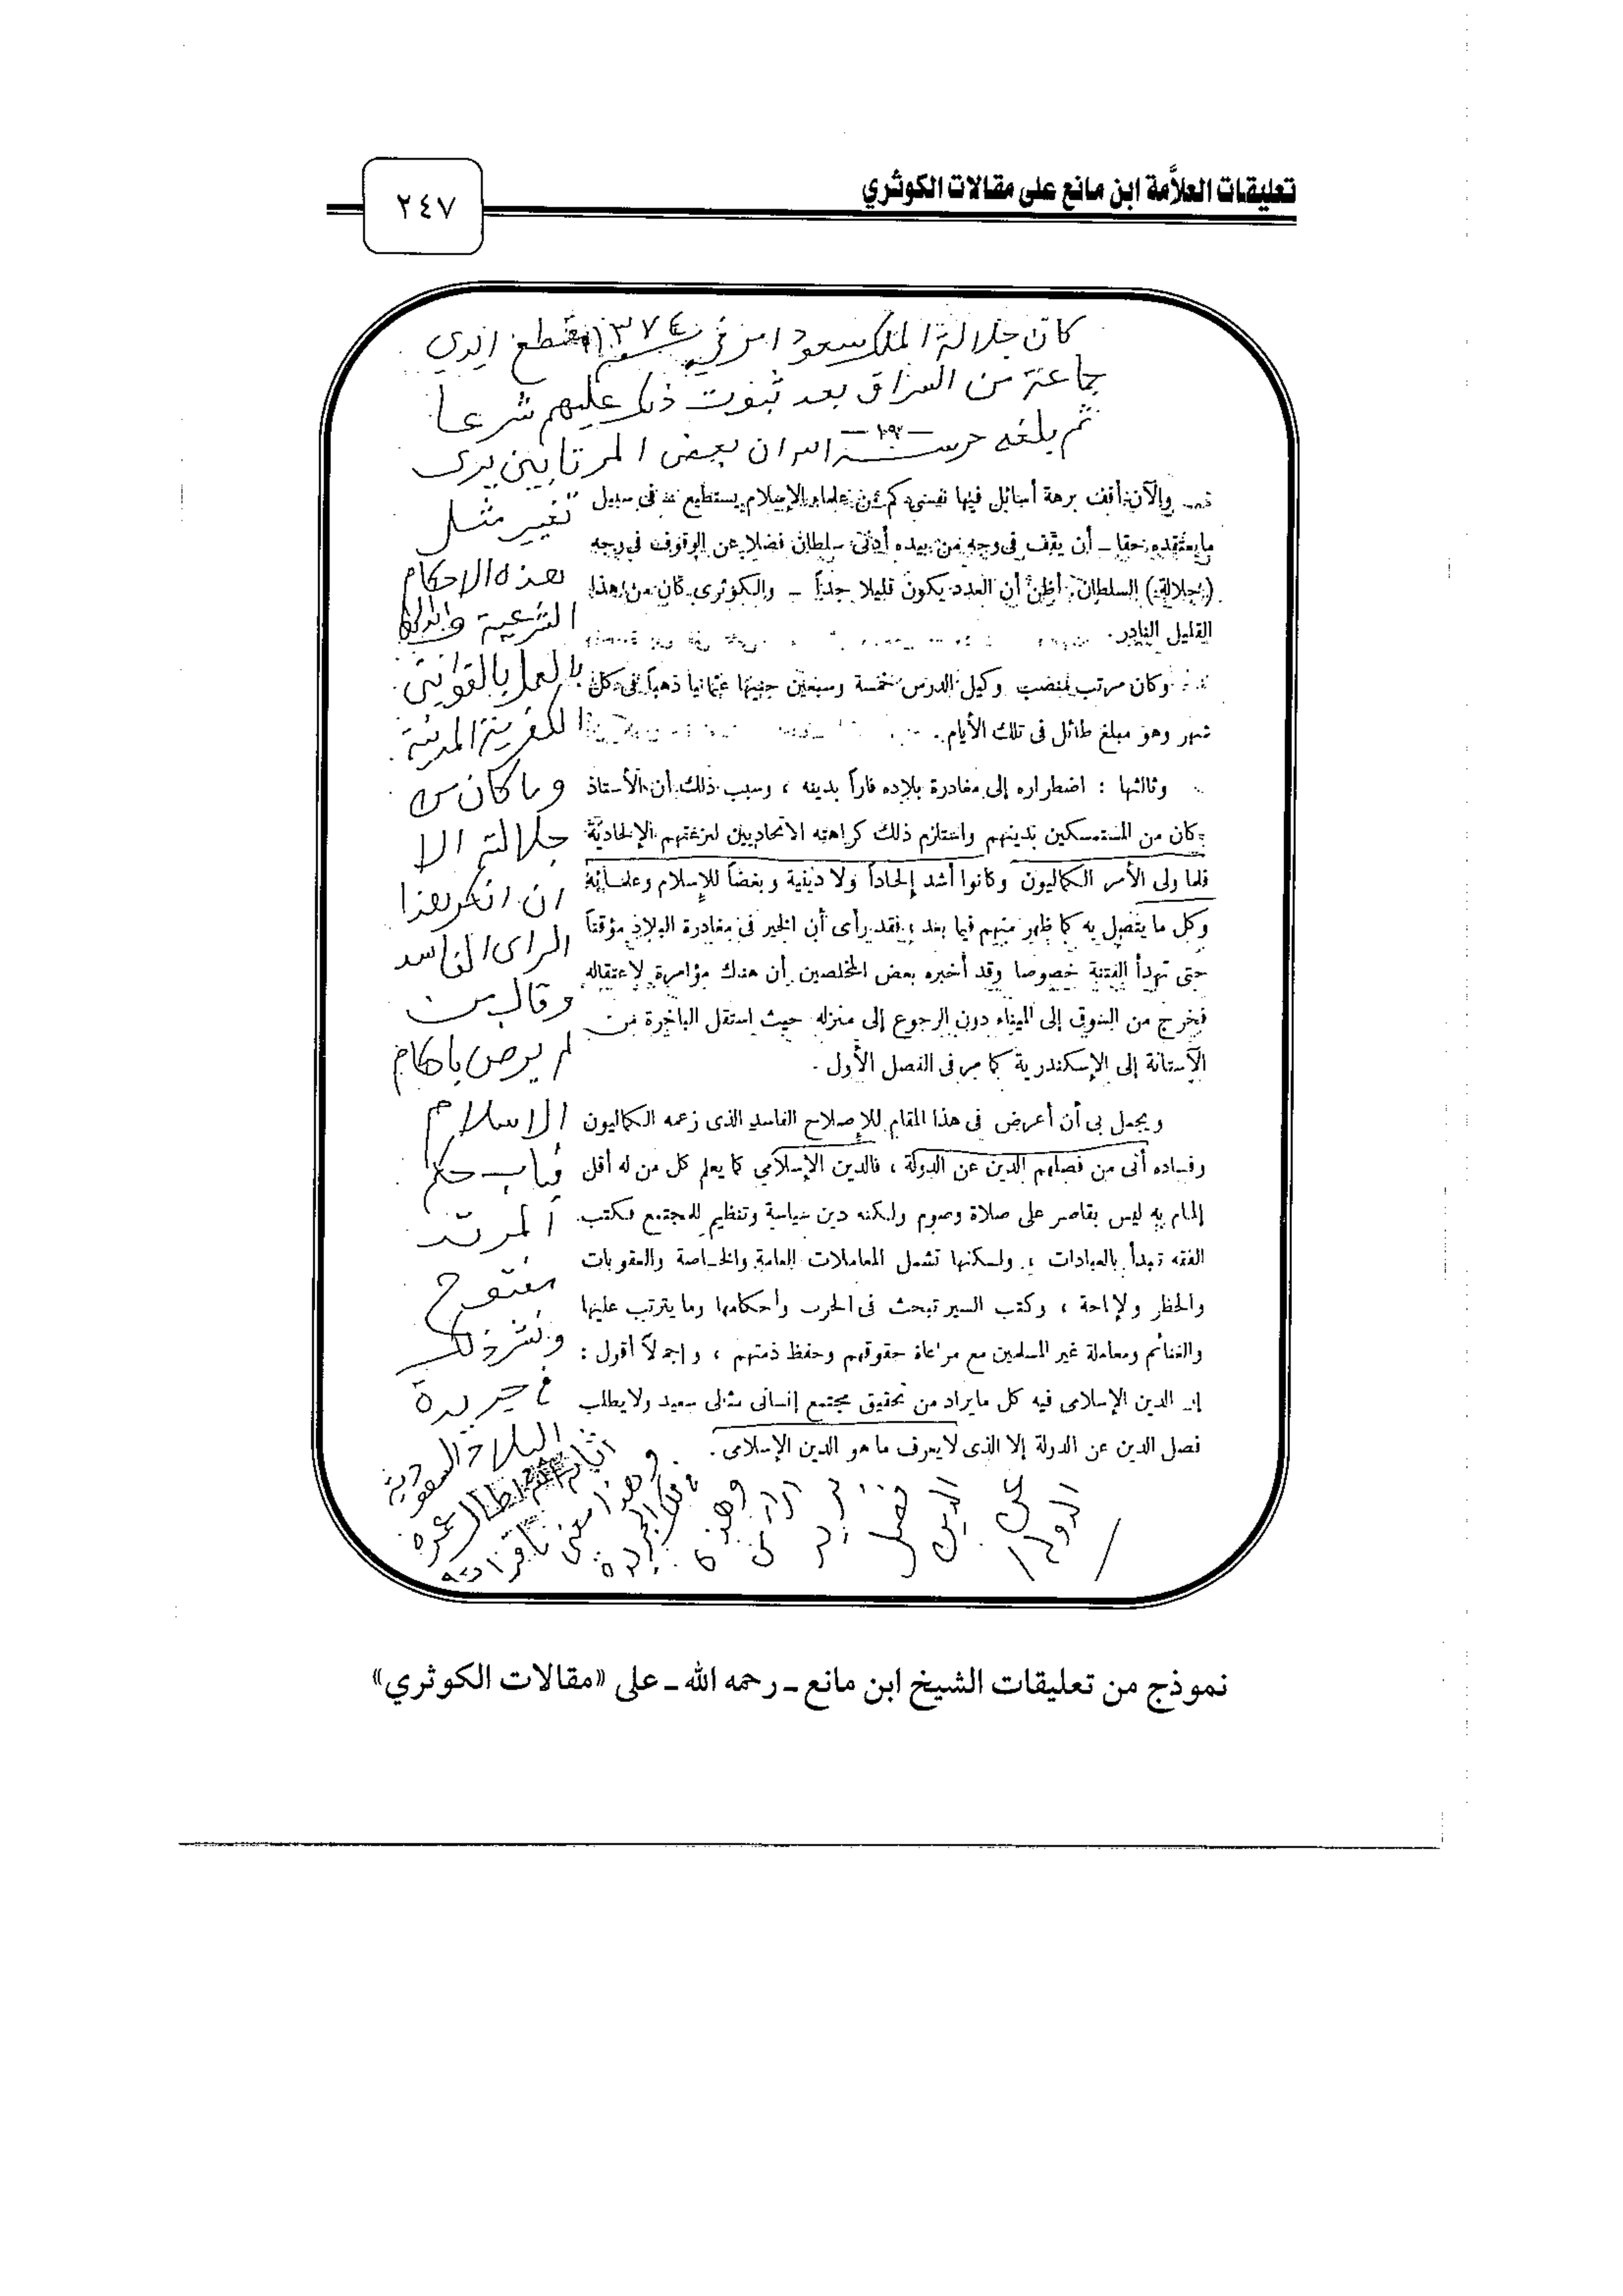 تعليقات العلاَّمة ابن مانع على مقالات الكوثري
٢٤٧
كان جلالة الملك سعود امر في سنة ١٣٧٤ بقطع ايدي
جماعة من السراق بعد ثبوت ذلك عليهم شرعا
ثم بلغه حرسه الله ان بعض المرتابين يرى
— ١٩٢ —
تغيير مثل
هذه الاحكام
الشرعية
بالعمل بالقوانين
الكفرية المدنية
وما كان من
جلالته الا
ان انكر هذا
الراى الفاسد
وقال من
لم يرض باحكام
الاسلام
فباب حكم
المرتد
مفتوح
ونشر ذلك
في جريدة
البلاد السعودية
اطال عمره
وهذا معنى
وهذه
يريد
فصل
الدين
عن
الدولة
والآن أقف برهة أسائل فيها نفسي كم من علماء الإسلام يستطيع فى سبيل
مايعتقده حقا ــ أن يقف فى وجه من بيده أدنى سلطان فضلا عن الوقوف فى وجه
(جلالة) السلطان، أظن أن العدد يكون قليلا جداً ــ والكوثرى كان من هذا
القليل النادر.
وكان مرتب منصب وكيل الدرس خمسة وسبعين جنيها عثمانيا ذهباً فى كل
شهر وهو مبلغ طائل فى تلك الأيام.
وثالثها : اضطراره إلى مغادرة بلاده فاراً بدينه ، وسبب ذلك أن الأستاذ
كان من المستمسكين بدينهم واستلزم ذلك كراهته الاتحاديين لنزعتهم الإلحاديّة
فلما ولى الأمر الكماليون وكانوا أشد إلحاداً ولا دينية وبغضاً للإسلام وعلمائه
وكل ما يتصل به كما ظهر منهم فيما بعد ؛ فقد رأى أن الخير فى مغادرة البلاد مؤقتاً
حتى تهدأ الفتنة خصوصا وقد أخبره بعض المخلصين أن هناك مؤامرة لاعتقاله
فخرج من السوق إلى الميناء دون الرجوع إلى منزله حيث استقل الباخرة من
الآستانة إلى الإسكندرية كما مر فى الفصل الأول .
ويجمل بى أن أعرض فى هذا المقام للإصلاح الفاسد الذى زعمه الكماليون
وفساده أتى من فصلهم الدين عن الدولة ، فالدين الإسلامي كما يعلم كل من له أقل
إلمام به ليس بقاصر على صلاة وصوم ولكنه دين سياسة وتنظيم للمجتمع فكتب
الفقه تبدأ بالعبادات ؛ ولكنها تشمل المعاملات العامة والخاصة والعقوبات
والحظر ولإباحة ، وكتب السير تبحث فى الحرب وأحكامها وما يترتب عليها
والغنائم ومعاملة غير المسلمين مع مراعاة حقوقهم وحفظ ذمتهم ، وإجمالاً أقول :
إن الدين الإسلامى فيه كل مايراد من تحقيق مجتمع إنسانى مثالى سعيد ولا يطلب
فصل الدين عن الدولة إلا الذى لا يعرف ما هو الدين الإسلامى .
نموذج من تعليقات الشيخ ابن مانع ـ رحمه الله ـ على «مقالات الكوثري»